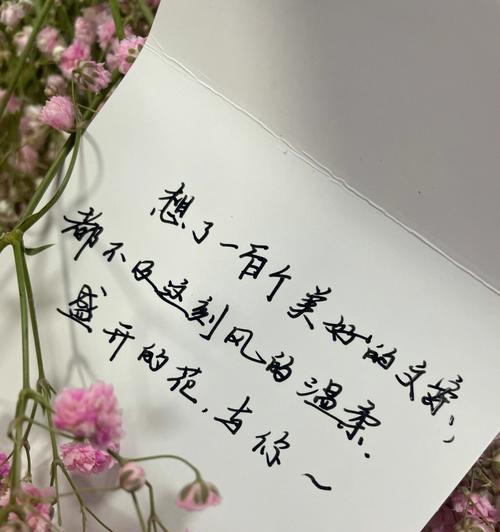 想了一百个美好的文案，
都不及这刻风的温柔.
盛开的花，与你～